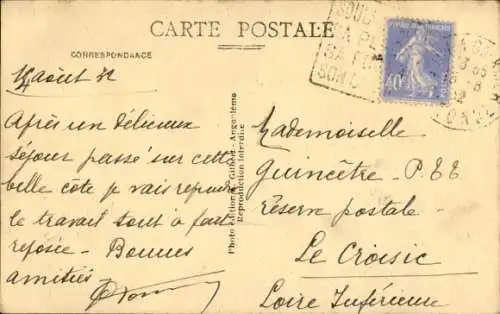 CARTE POSTALE
CORRESPONDANCE
14 août 32
Après un délicieux
séjour passé sur cette
belle côte je vais reprendre
le travail tout à fait
reposée - Bonnes
amitiés -
Photo édition de Gilbert - Angoulême
Reproduction Interdite.
SA PL
SON
40
Mademoiselle
Guincêtre - P.T.T
réserve postale -
Le Croisic
Loire Inférieure